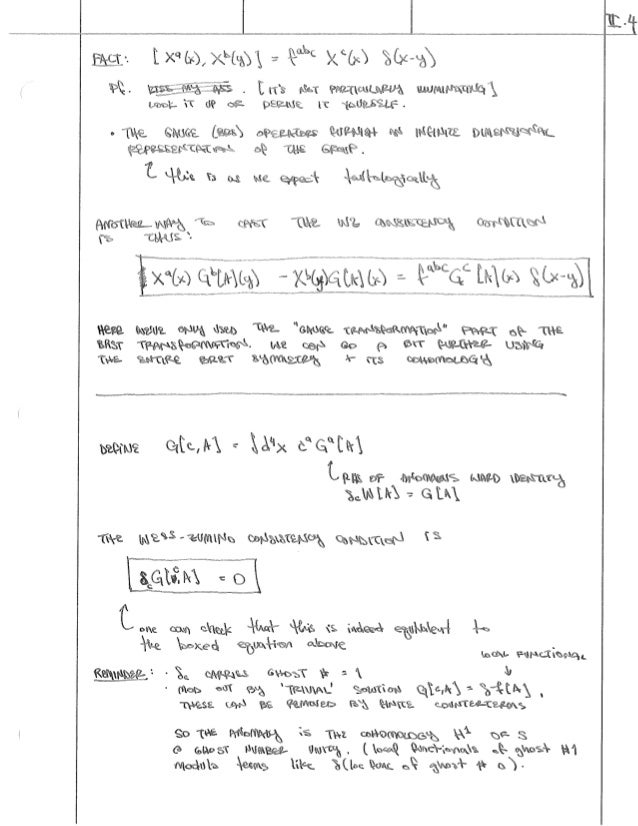 II.4
FACT: [X^a(x), X^b(y)] = f^{abc} X^c(x) δ(x-y)
Pf. KISS MY ASS. [IT'S NOT PARTICULARLY ILLUMINATING]
LOOK IT UP OR DERIVE IT YOURSELF.
• THE GAUGE (BRS) OPERATORS FURNISH AN INFINITE DIMENSIONAL
REPRESENTATION OF THE GROUP.
this is as we expect tautologically
ANOTHER WAY TO CAST THE WZ CONSISTENCY CONDITION
IS THUS:
X^a(x) G^b[A](y) - X^b(y)G[A](x) = f^{abc}G^c[A](x) δ(x-y)
HERE WE'VE ONLY USED THE "GAUGE TRANSFORMATION" PART OF THE
BRST TRANSFORMATION. WE CAN GO A BIT FURTHER USING
THE ENTIRE BRST SYMMETRY + ITS COHOMOLOGY
DEFINE G[c,A] = ∫d⁴x c^a G^a[A]
RHS OF ANOMALOUS WARD IDENTITY
δ_c W[A] = G[A]
THE WESS-ZUMINO CONSISTENCY CONDITION IS
δ_c G[c,A] = 0
one can check that this is indeed equivalent to
the boxed equation above
LOCAL FUNCTIONAL
REMINDER: • δ_c CARRIES GHOST # = 1
• MOD OUT BY 'TRIVIAL' SOLUTION G[c,A] = δf[A],
THESE CAN BE REMOVED BY FINITE COUNTERTERMS
SO THE ANOMALY IS THE COHOMOLOGY H¹ OF S
@ GHOST NUMBER UNITY. (local functionals of ghost #1
modulo terms like δ(loc func of ghost # 0).